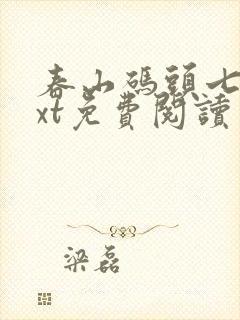 春山碼頭七
xt免費閱讀
梁磊